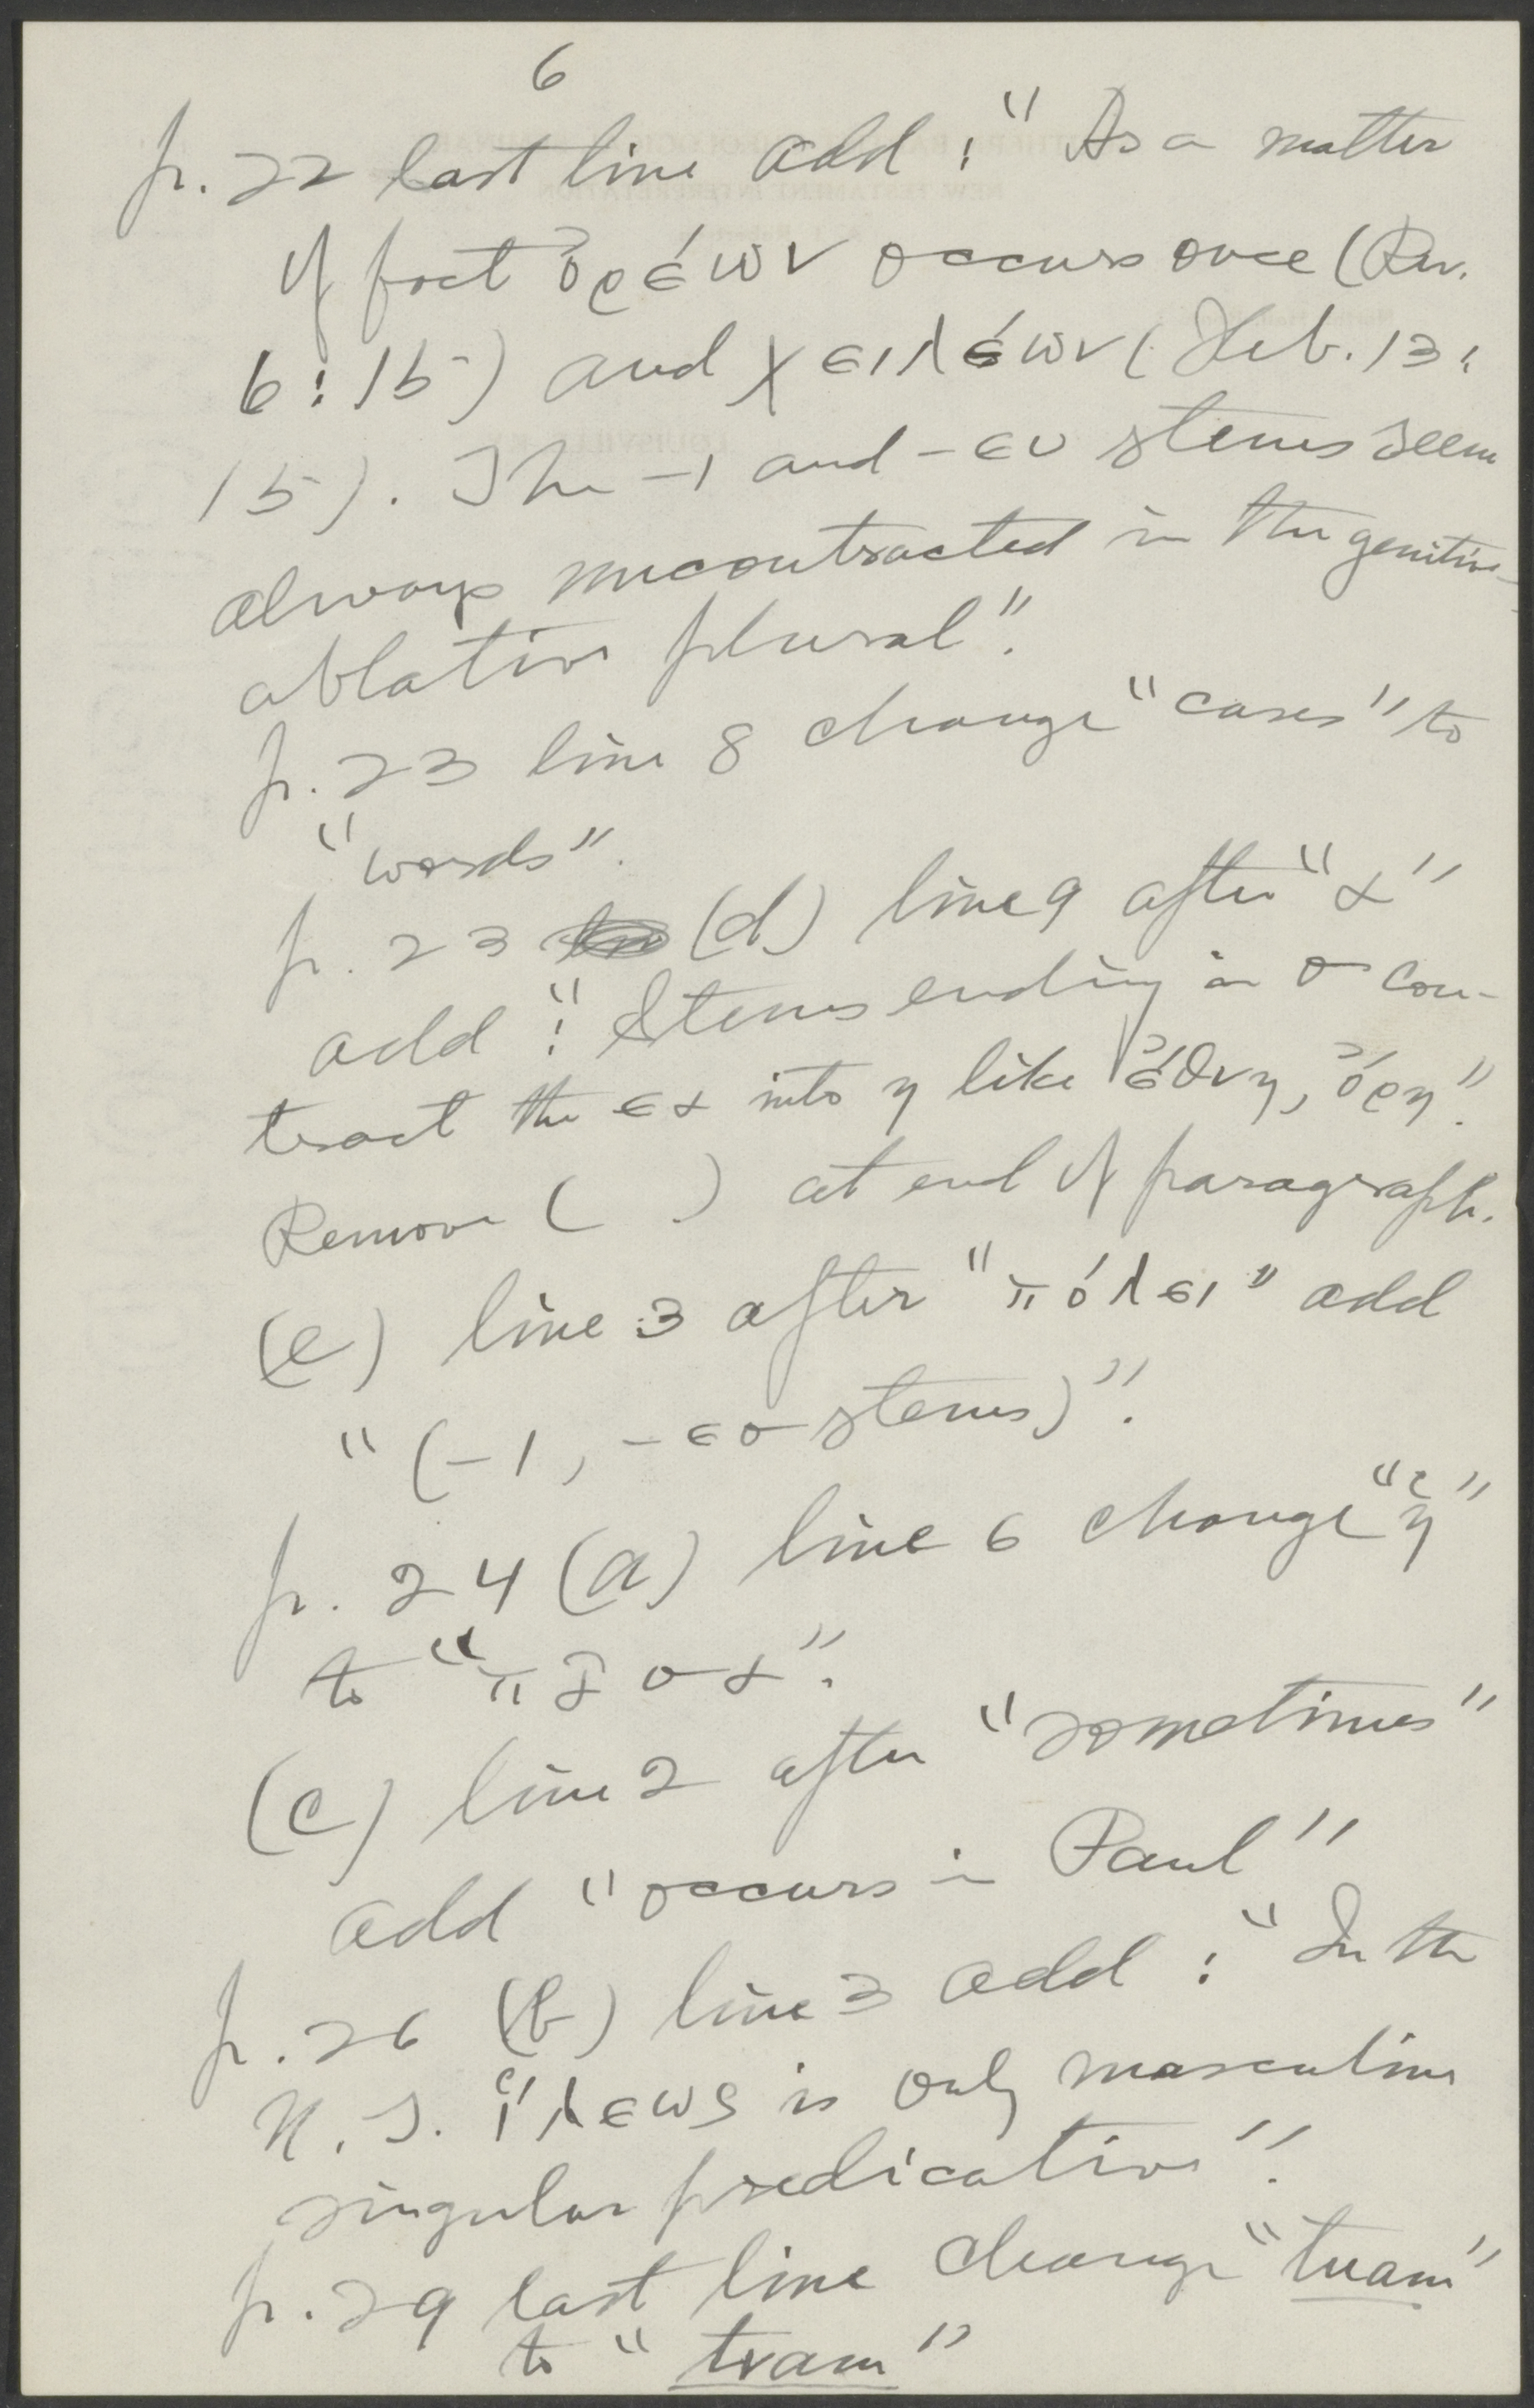 6
p. 22 last line add: "As a matter
of fact ὀρέων occurs once (Rev.
6:15) and χειλέων (Heb. 13:
15). The -ι and -ευ stems seem
always uncontracted in the genitive-
ablative plural".
p. 23 line 8 change "cases" to
"words".
p. 23 (d) line 9 after "α"
add: "Stems ending in σ con-
tract the εα into η like ἔθνη, ὄρη".
Remove ( ) at end of paragraph.
(e) line 3 after "πόλει" add
"(-ι, -εσ stems)".
p. 24 (a) line 6 change "ἡ"
to "πᾶσα".
(c) line 2 after "sometimes"
add "occurs in Paul"
p. 26 (b) line 3 add: "In the
N. T. ἵλεως is only masculine
singular predicative".
p. 29 last line change "tuam"
to "tvam"